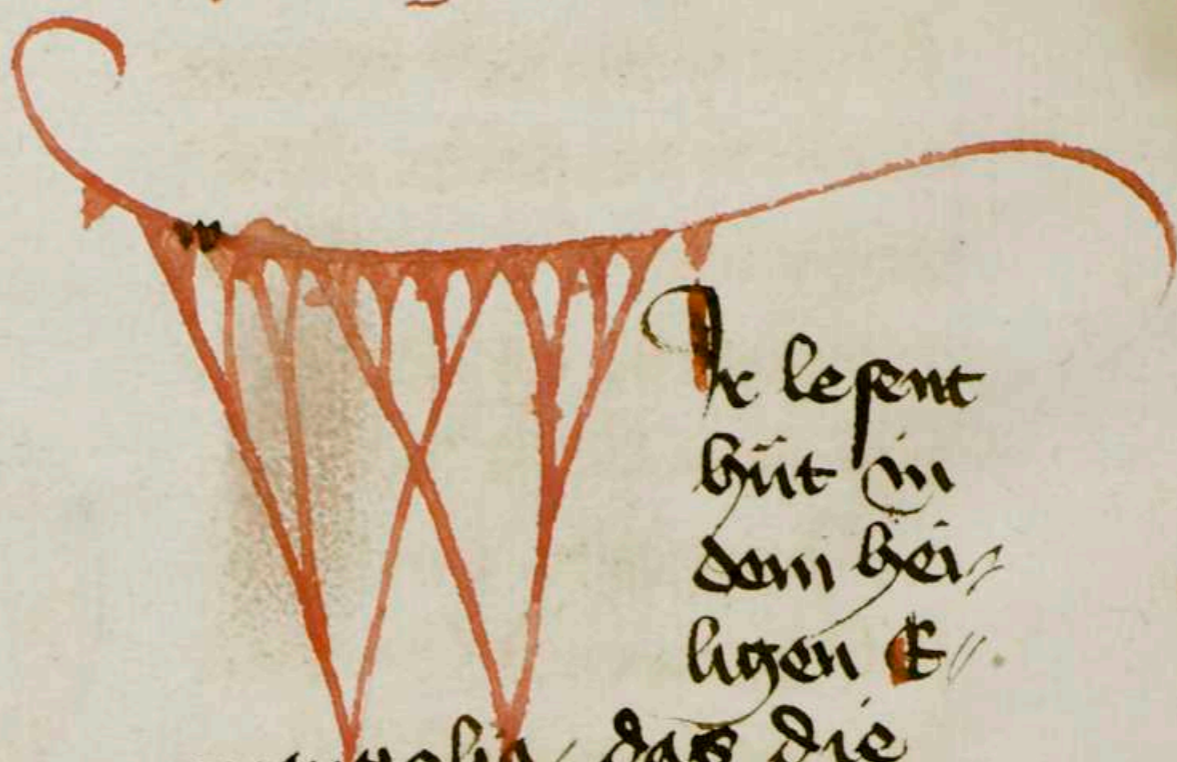 WIr lesent
hüt in
dem hei-
ligen E-
das die